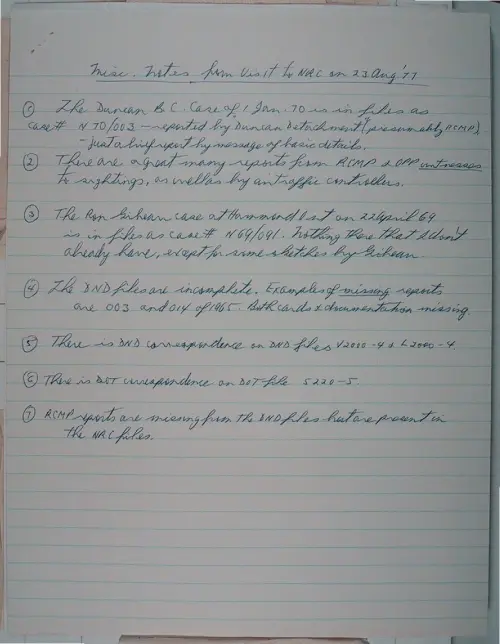 Misc. Notes from Visit to NRC on 23 Aug '77
① The Duncan B C. Case of 1 Jan. 70 is in files as
case# N70/003 — reported by Duncan Detachment (presumably RCMP)
- Just a brief report by message of basic details.
② There are a great many reports from RCMP & OPP witnesses
to sightings, as well as by air traffic controllers.
③ The Ron Gihean case at Hammond Ont on 22 April 69
is in files as case # N69/091. Nothing there that I don't
already have, except for some sketches by Gihean.
④ The DND files are incomplete. Examples of missing reports
are 003 and 014 of 1965. Both cards & documentation missing.
⑤ There is DND correspondence on DND files V2000-4 & L2000-4.
⑥ There is DOT correspondence on DOT file 5220-5
⑦ RCMP reports are missing from the DND files but are present in
the NRC files.